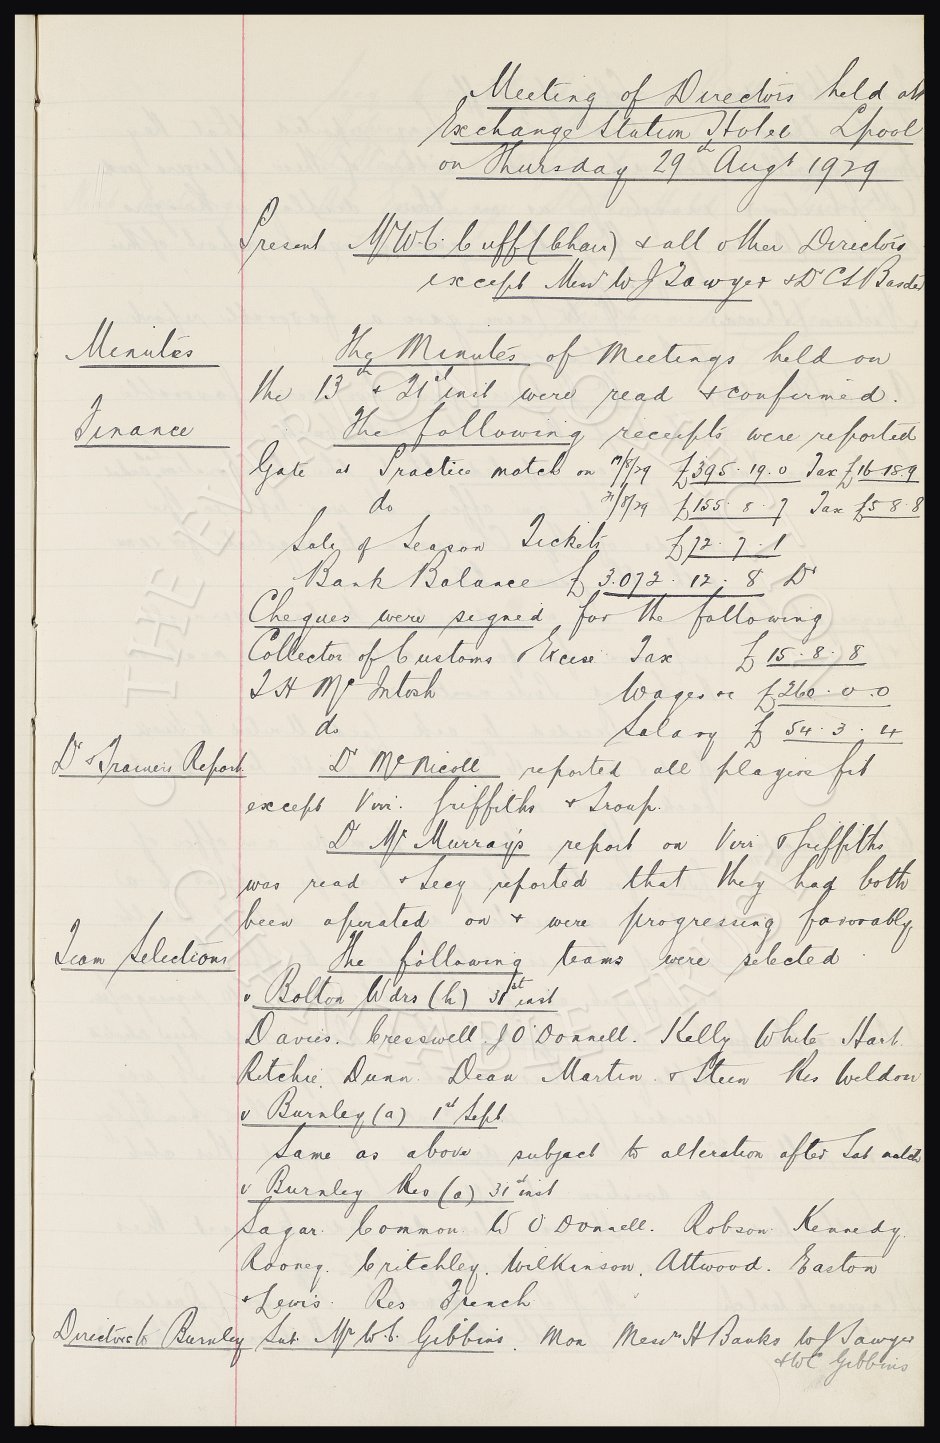 Meeting of Directors held at
Exchange Station Hotel Lpool
on Thursday 29th Augt 1929
Present Mr W.C. Cuff (Chair) & all other Directors
except Messrs W J Sawyer & Dr C S Baxter
Minutes The Minutes of Meetings held on
the 13th & 21st inst were read & confirmed.
Finance The following receipts were reported
Gate at Practice match on 17/8/29 £395.19.0 Tax £16.18.9
do 21/8/29 £155.8.7 Tax £5 8 8
Sale of Season Tickets £72.7.1
Bank Balance £3.072.12.8 Dr
Cheques were signed for the following
Collector of Customs & Excise Tax £15.8.8
T H McIntosh Wages &c £260.0.0
do Salary £54.3.4
Dr & Trainers Report Dr McNicoll reported all players fit
except Virr. Griffiths & Troup.
Dr McMurray's report on Virr & Griffiths
was read & Secy reported that they had both
been operated on & were progressing favorably.
Team Selections The following teams were selected
v Bolton Wdrs (h) 31st inst
Davies. Cresswell. J O'Donnell. Kelly White Hart.
Ritchie. Dunn. Dean Martin & Stein Res Weldon
v Burnley (a) 1st Sept
Same as above subject to alteration after Sat match
v Burnley Res (a) 31st inst
Sagar. Common. W O'Donnell. Robson. Kennedy.
Rooney. Critchley. Wilkinson. Attwood. Easton
& Lewis. Res French
Directors to Burnley Sat. Mr W.C. Gibbins. Mon Messrs H Banks W J Sawyer
& W C Gibbins
THE EVERTON